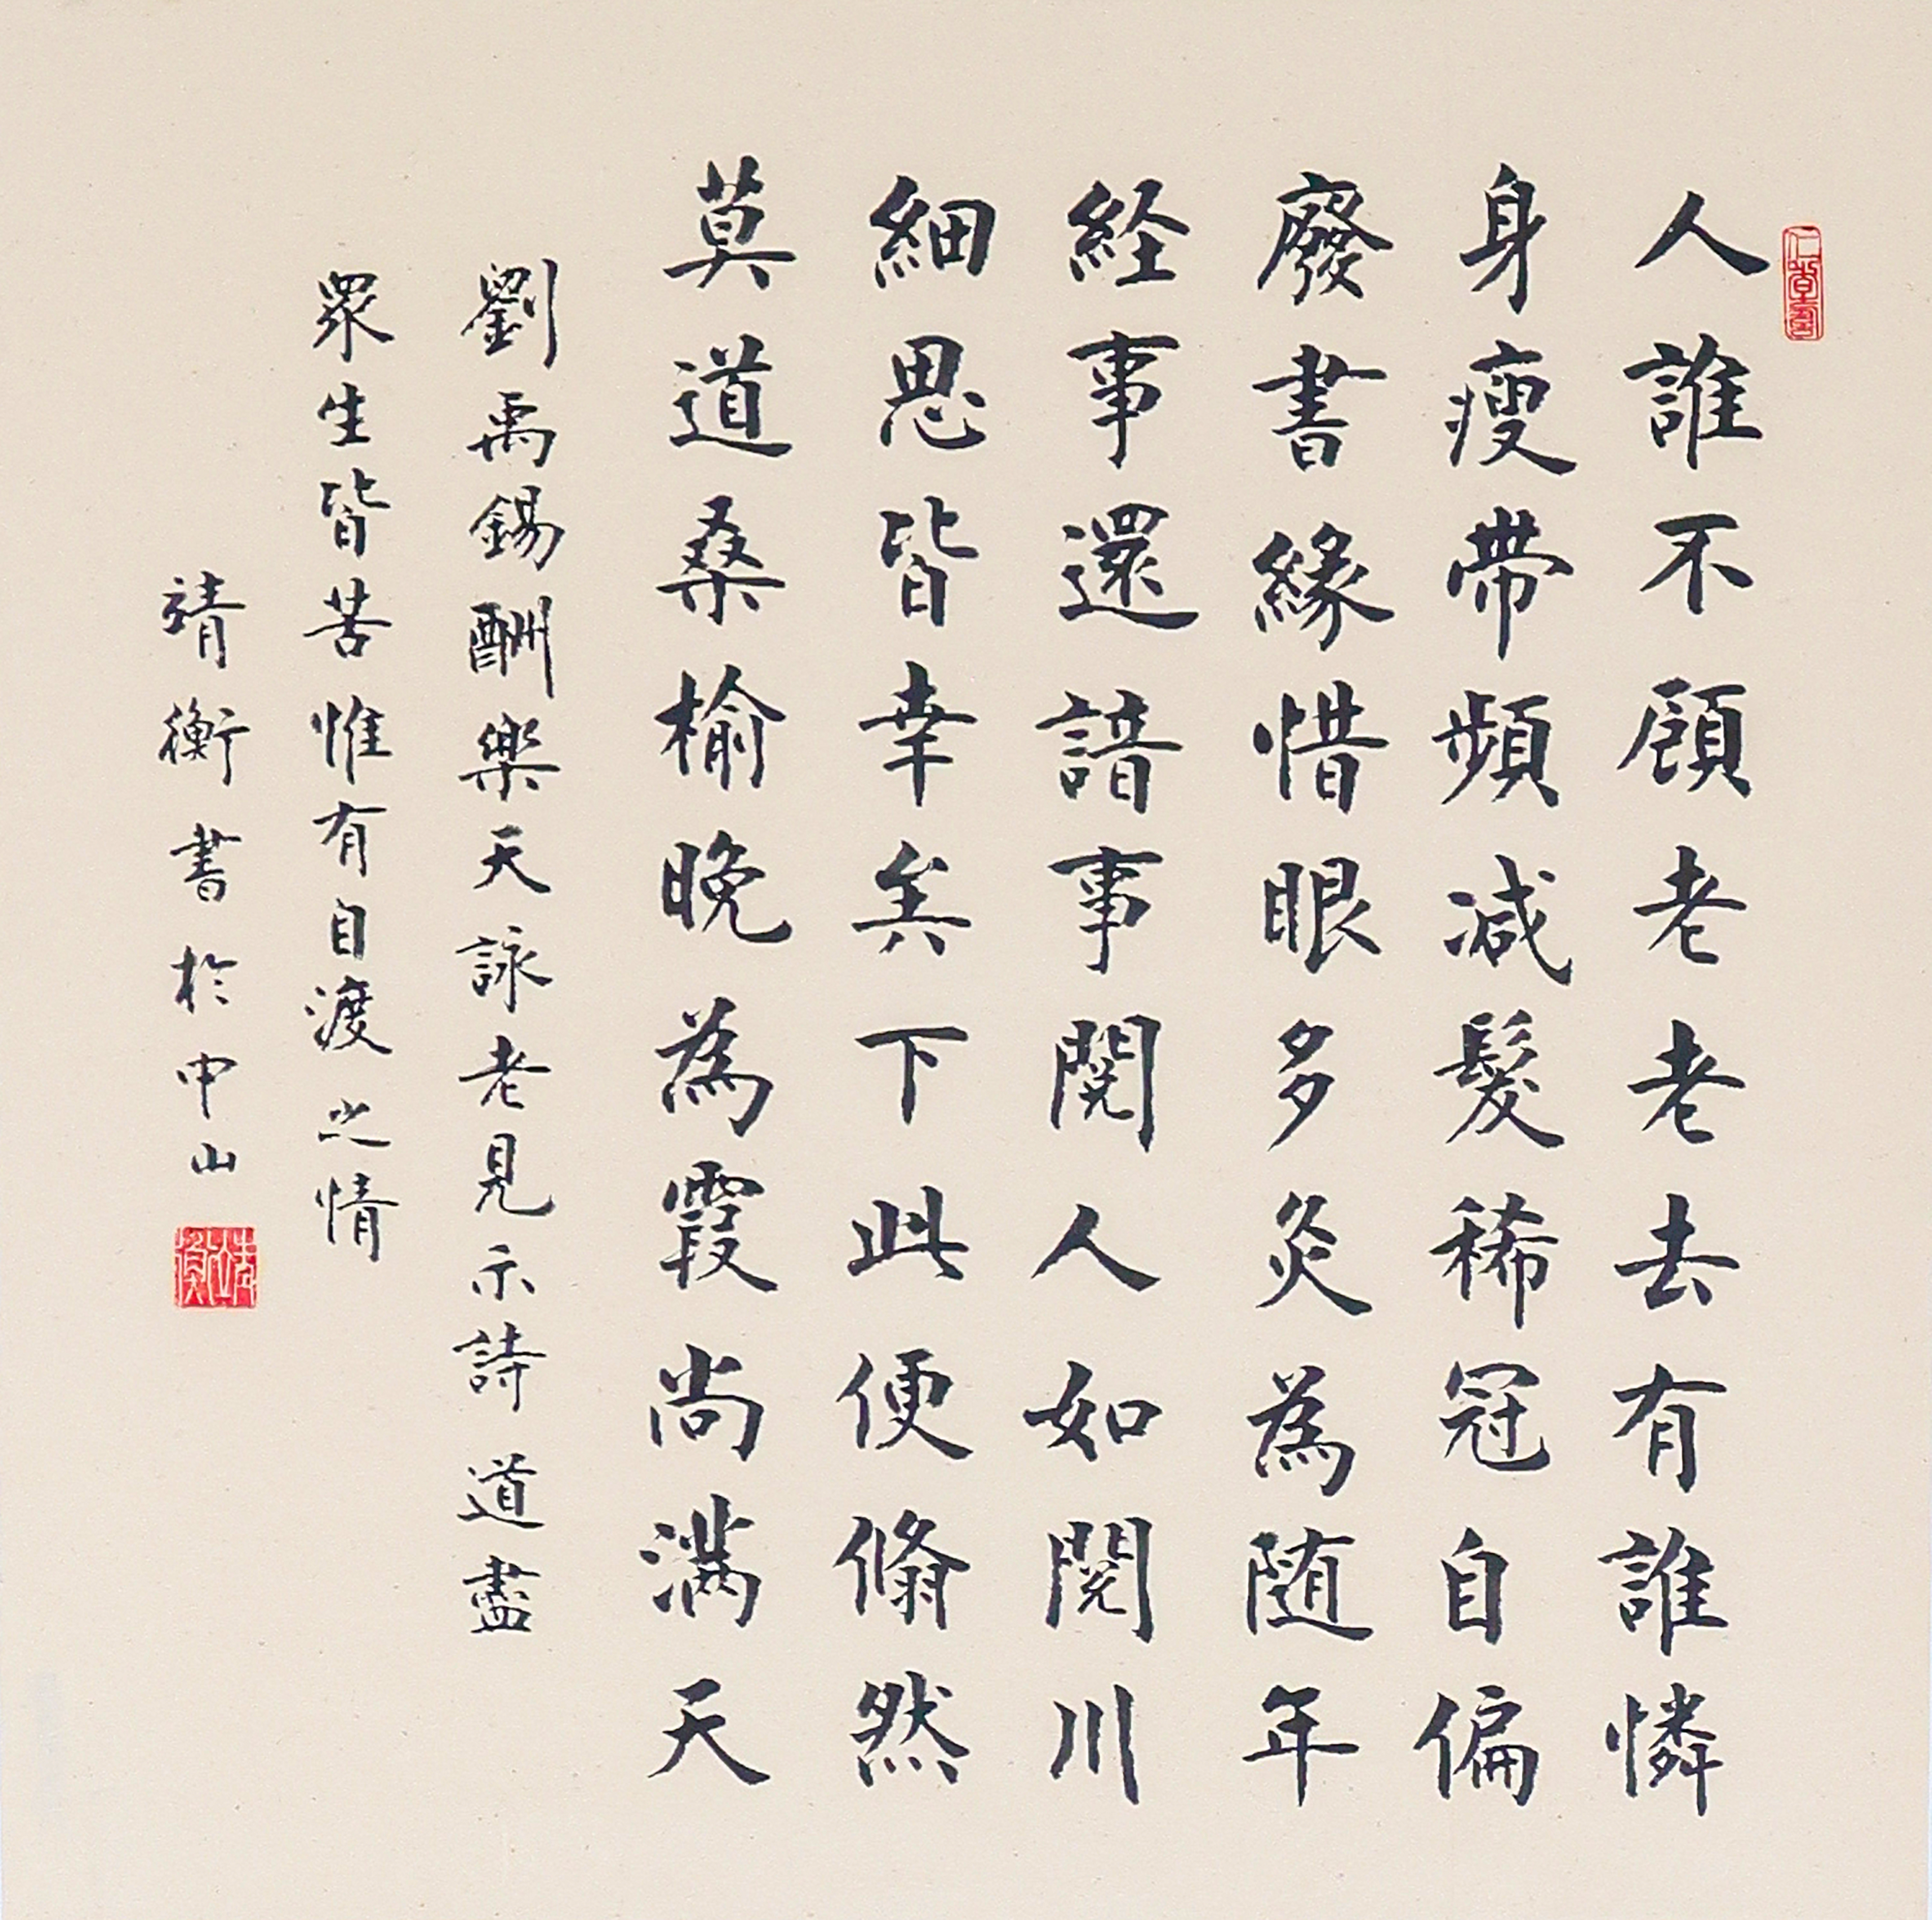 仁者壽
人誰不顧老老去有誰憐
身瘦帶頻減髮稀冠自偏
廢書緣惜眼多灸為随年
経事還諳事閱人如閱川
細思皆幸矣下此便翛然
莫道桑榆晚為霞尚滿天
劉禹錫酬樂天詠老見示詩道盡
眾生皆苦惟有自渡之情
靖衡書於中山